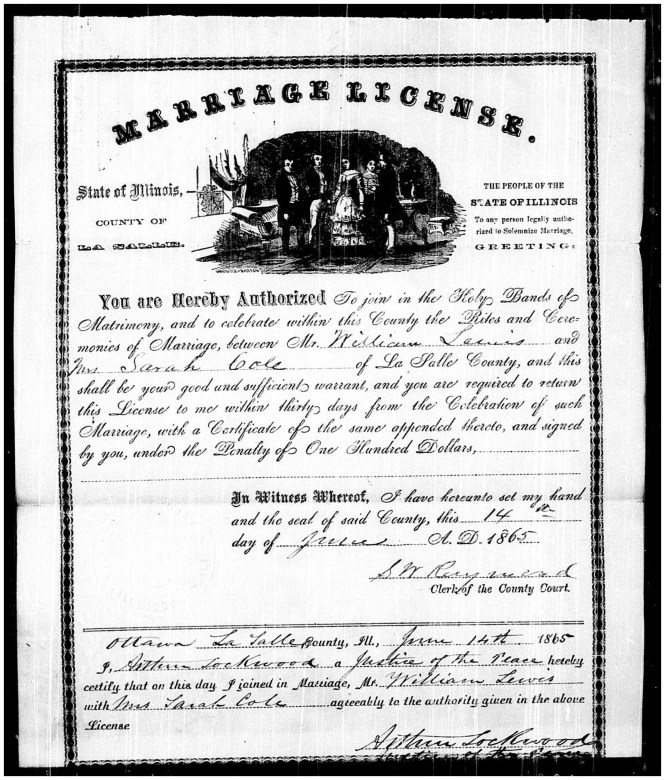 MARRIAGE LICENSE.
State of Illinois,
COUNTY OF
LA SALLE.
THE PEOPLE OF THE
STATE OF ILLINOIS
To any person legally autho-
rized to Solemnize Marriage,
GREETING:
You are Hereby Authorized To join in the Holy Bands of
Matrimony, and to celebrate within this County the Rites and Cere-
monies of Marriage, between Mr. William Lewis and
Mrs Sarah Cole of La Salle County, and this
shall be your good and sufficient warrant, and you are required to return
this License to me within thirty days from the Celebration of such
Marriage, with a Certificate of the same appended thereto, and signed
by you, under the Penalty of One Hundred Dollars,
In Witness Whereof, I have hereunto set my hand
and the seal of said County, this 14th
day of June A. D. 1865
S W Raymond
Clerk of the County Court.
Ottawa La Salle County, Ill., June 14th 1865
I, Arthur Lockwood a Justice of the Peace hereby
certify that on this day I joined in Marriage, Mr. William Lewis
with Mrs Sarah Cole agreeably to the authority given in the above
License
Arthur Lockwood